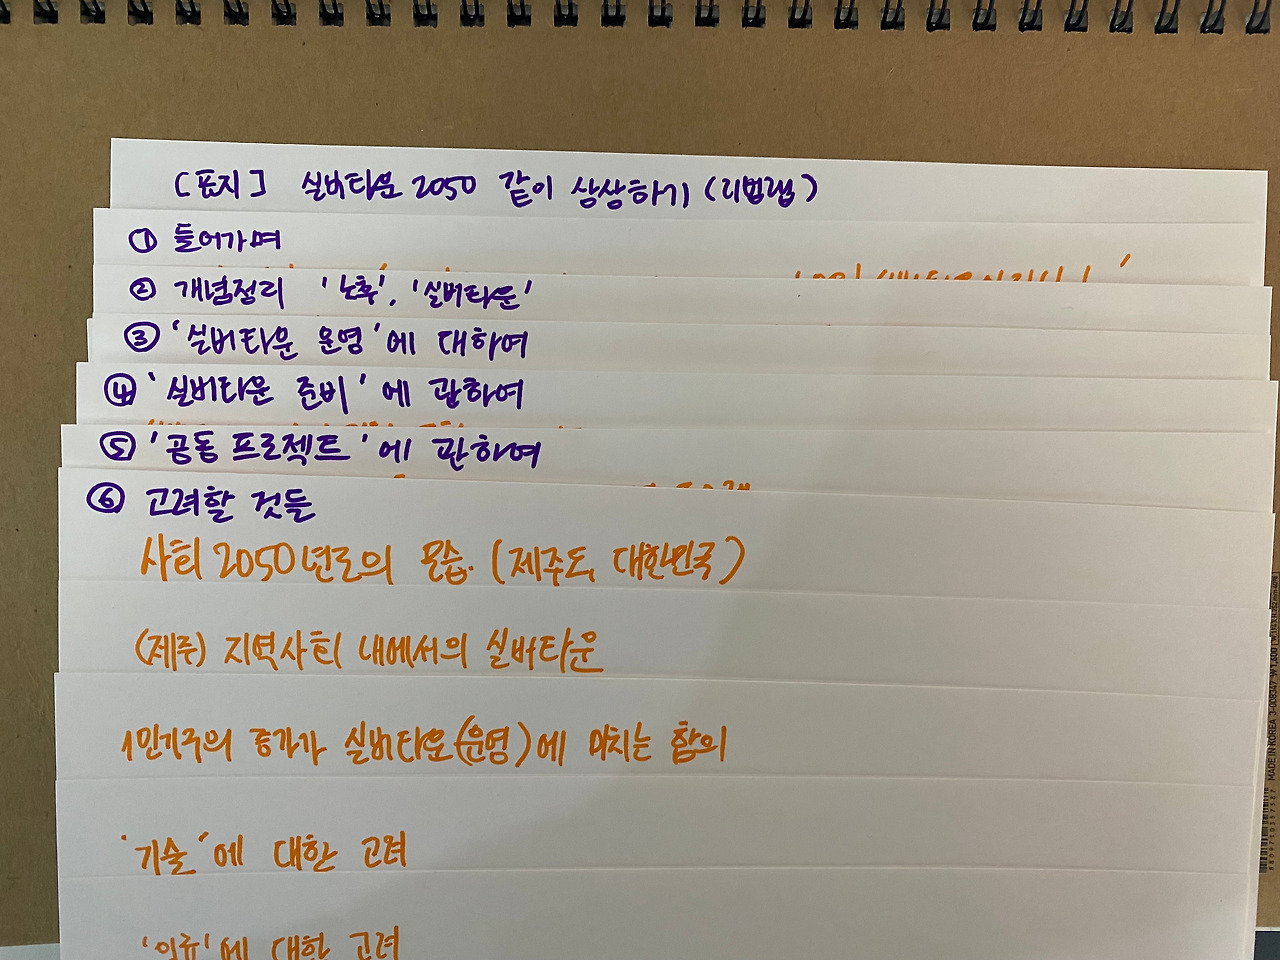 [표지] 실버타운 2050 같이 상상하기 (리빙랩)
① 들어가며
② 개념정리 '노후', '실버타운'
③ '실버타운 운영'에 대하여
④ '실버타운 준비'에 관하여
⑤ '공동 프로젝트'에 관하여
⑥ 고려할 것들
사회 2050년도의 모습. (제주도, 대한민국)
(제주) 지역사회 내에서의 실버타운
1인가구의 증가가 실버타운(운영)에 미치는 함의
'기술'에 대한 고려
'의료'에 대한 고려
MADE IN KOREA